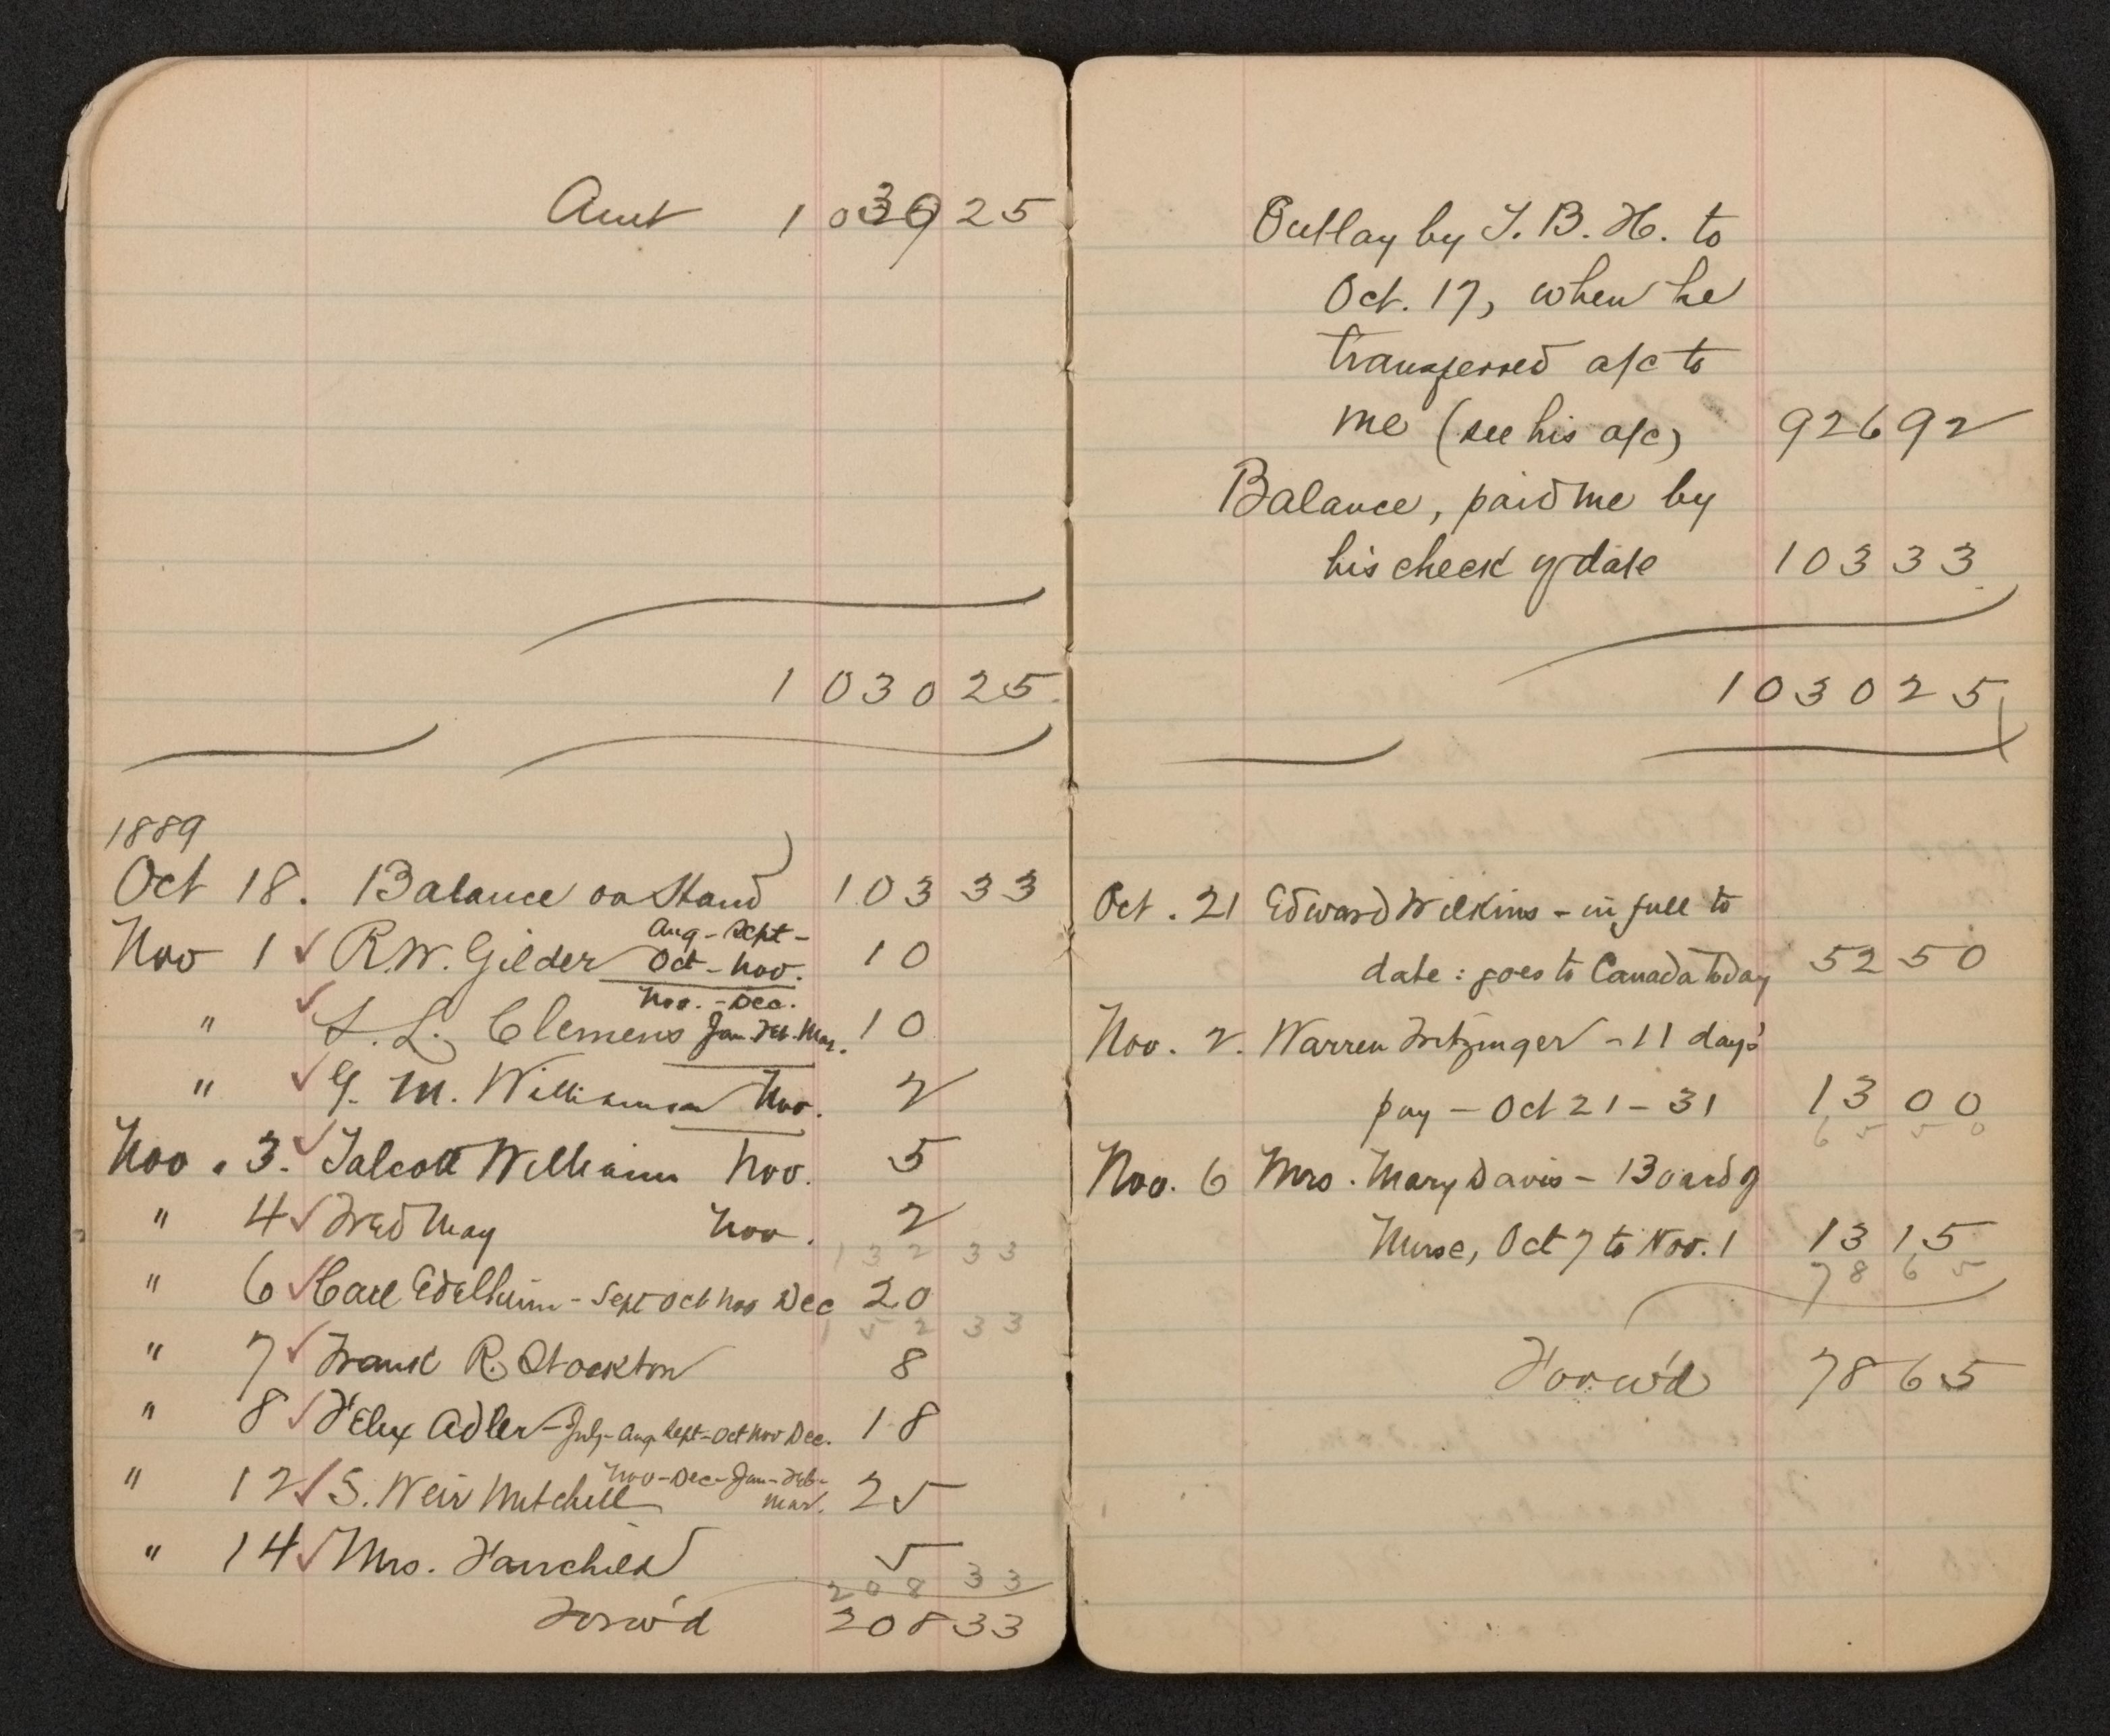 Amt 1030 25
1030 25
1889
Oct 18. Balance on Hand 103 33
Nov 1 ✓ R.W. Gilder Aug-Sept-
Oct-Nov. 10
" ✓ S. L. Clemens Nov.-Dec.
Jan. Feb. Mar. 10
" ✓ G. M. Williamson Nov. 2
Nov. 3. ✓ Talcott Williams Nov. 5
" 4 ✓ Fred May Nov. 2
132 33
" 6 ✓ Carl Edelheim - Sept Oct Nov Dec 20
152 33
" 7 ✓ Frank R. Stockton 8
" 8 ✓ Felix Adler - July-Aug Sept-Oct Nov Dec. 18
" 12 ✓ S. Weir Mitchell Nov-Dec-Jan-Feb-
Mar. 25
" 14 ✓ Mrs. Fairchild 5
208 33
Forw'd 208 33
Outlay by T. B. H. to
Oct. 17, when he
transferred a/c to
me (see his a/c) 926 92
Balance, paid me by
his check of date 103 33
1030 25
Oct. 21 Edward Wilkins - in full to
date: goes to Canada today 52 50
Nov. 2. Warren Fritzinger - 11 days'
pay - Oct 21-31 13 00
65 50
Nov. 6 Mrs. Mary Davis - Board of
Nurse, Oct 7 to Nov. 1 13 15
78 65
Forw'd 78 65